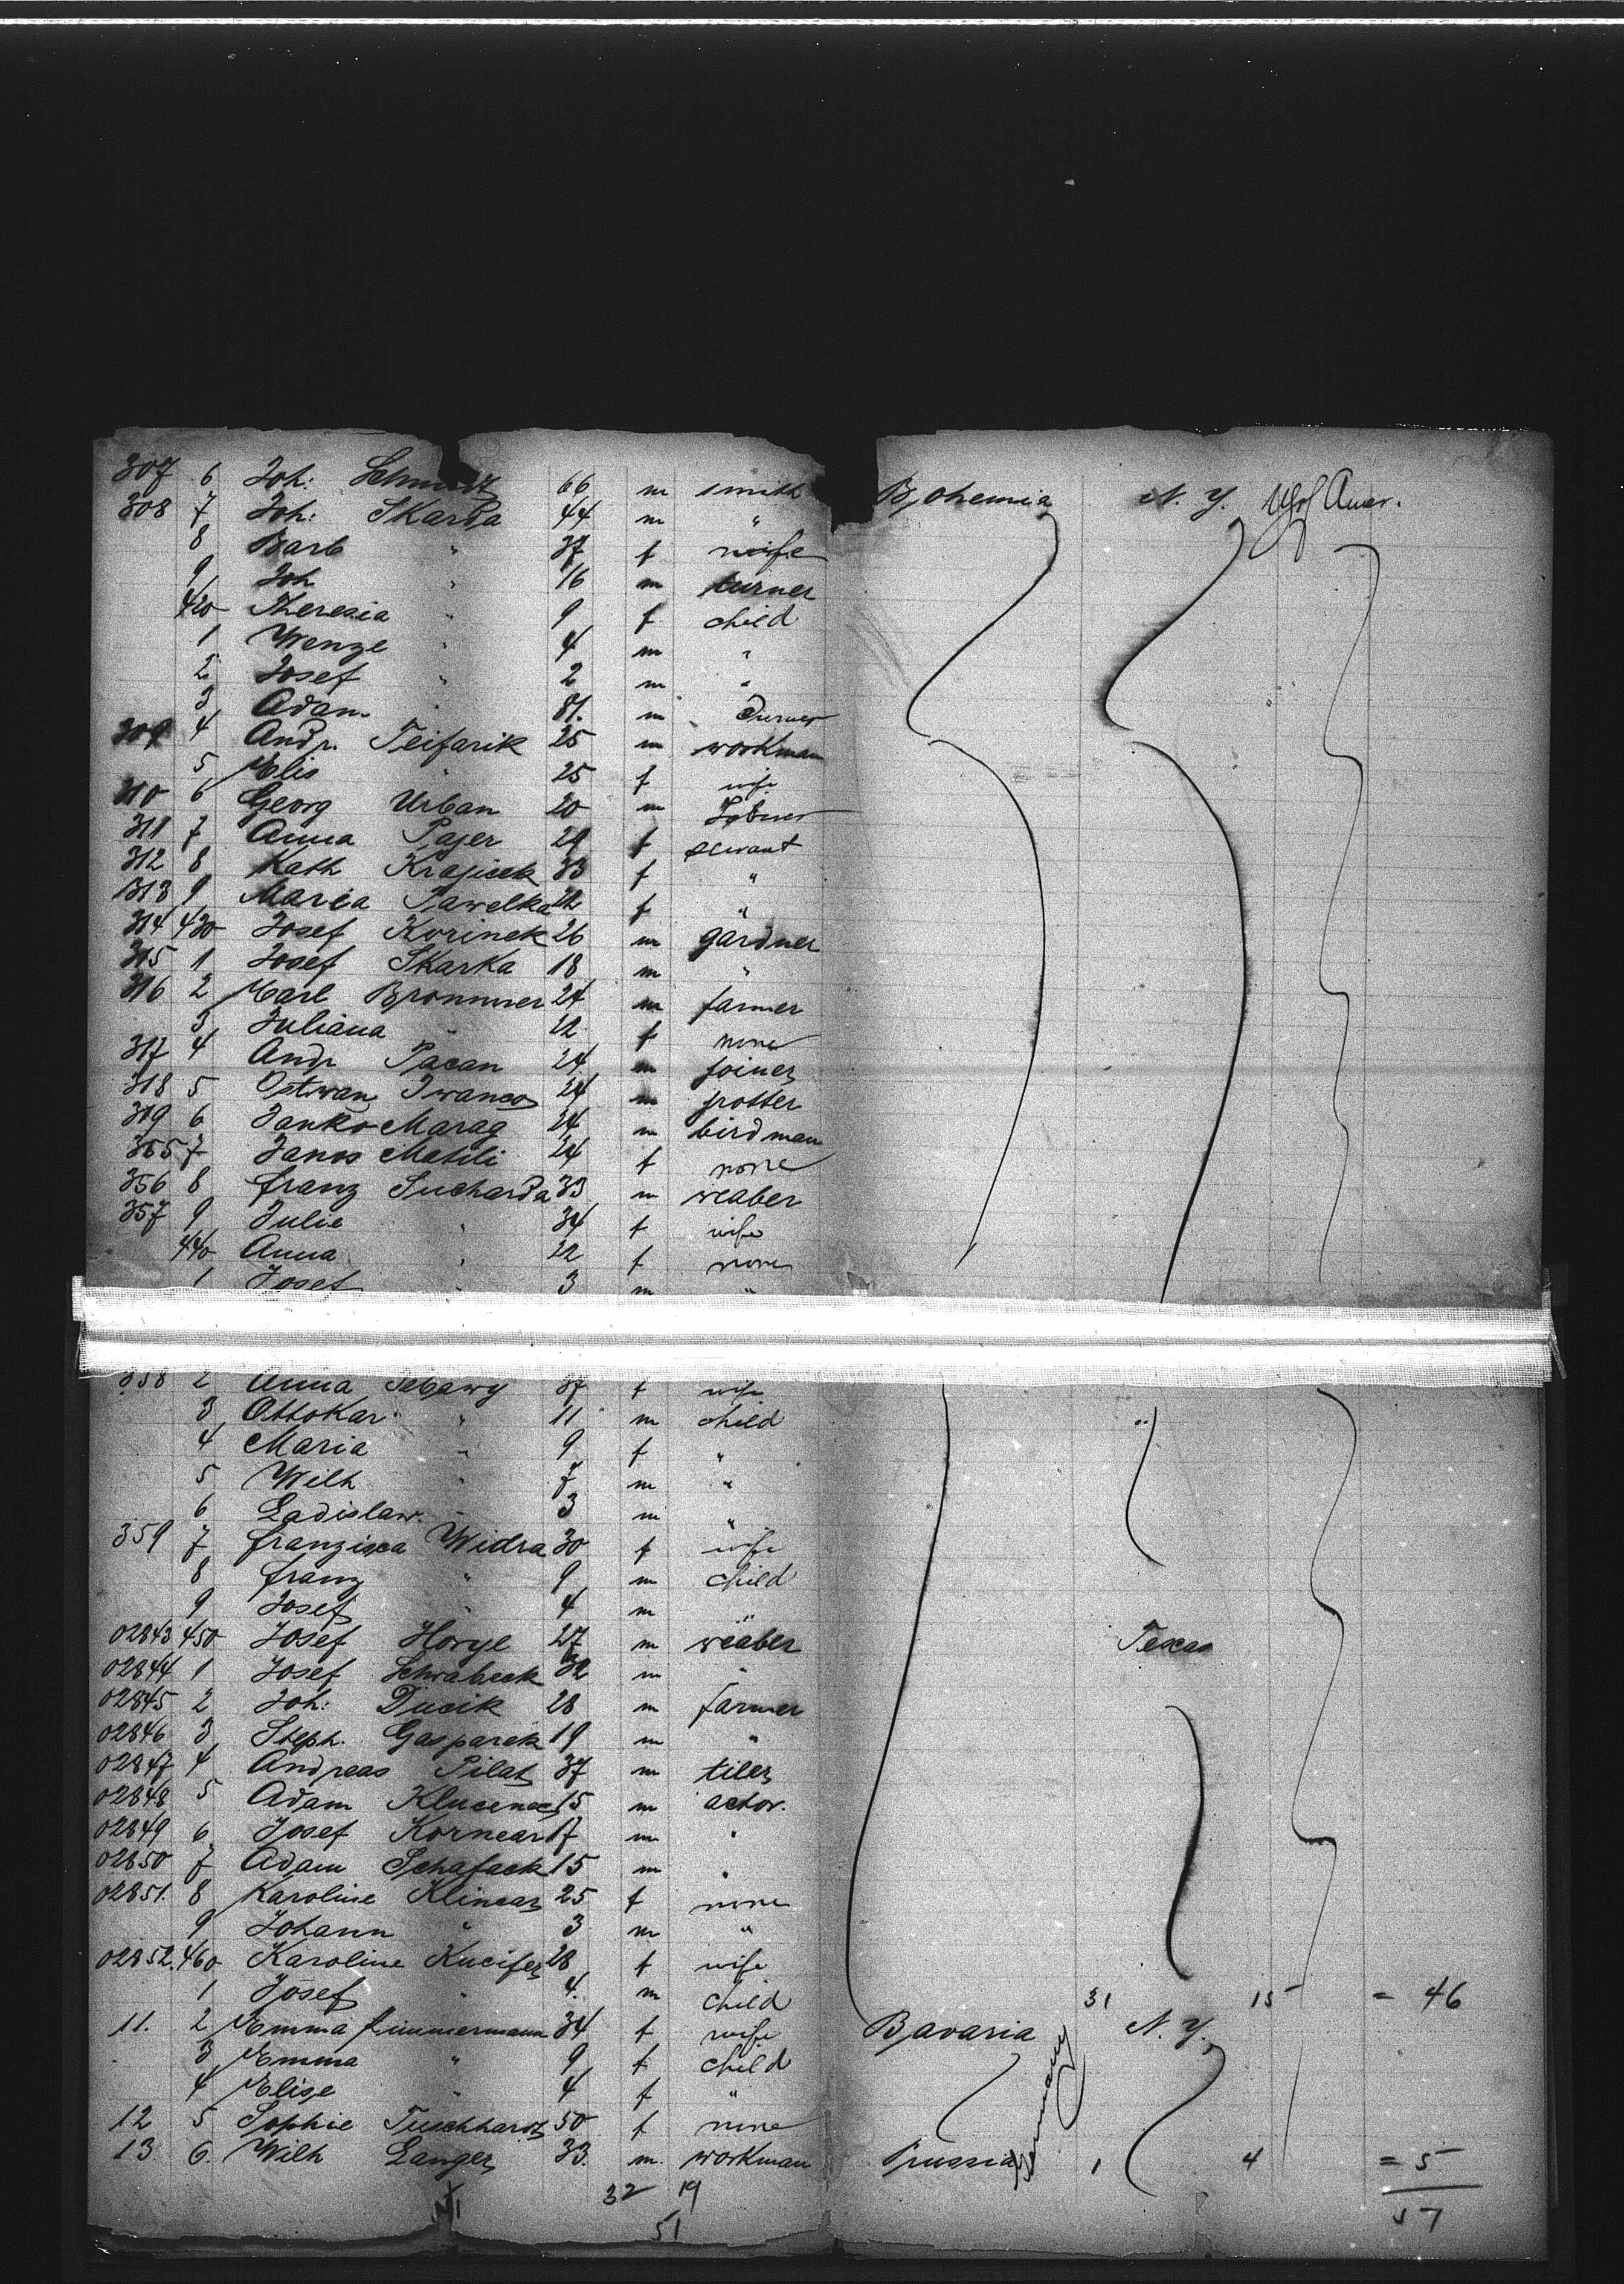 307 6 Joh: 66 m smith Bohemia N. Y.
308 7 Joh: Skarda 44 m "
8 Barb " 37 f wife
9 Joh " 16 m turner
420 Theresia " 9 f child
1 Wenzl " 4 m "
2 Josef " 2 m "
3 Adam " m
309 4 Andr. Teifarik 25 m workman
5 Elis " 25 f wife
310 6 Georg Urban 20 m
311 7 Anna Pajer 29 f servant
312 8 Kath Krajicek 33 f "
313 9 Maria Pawelka 22 f "
314 430 Josef Korinek 26 m gardner
315 1 Josef Skarka 18 m "
316 2 Carl Brommer 24 m farmer
3 Juliana " 22 f none
317 4 Andr Pacan 24 m joiner
318 5 Ostwan Iwanco 24 m potter
319 6 Janko Marag 24 m birdman
355 7 Janos Matili 24 f none
356 8 Franz Sucharda 33 m weaber
357 9 Julie " 34 f wife
440 Anna " 22 f none
1 Josef " 3 m "
358 2 Anna 37 f wife
3 Ottokar " 11 m child
4 Maria " 9 f "
5 Wilh " 7 m "
6 Ladislaw " 3 m "
359 7 Franzisca Widra 30 f wife
8 Franz " 9 m child
9 Josef " 4 m "
02843 450 Josef Horyl 27 m weaber Texas
02844 1 Josef Schwabeck 32 m "
02845 2 Joh: Ducik 28 m farmer
02846 3 Steph. Gasparek 19 m "
02847 4 Andreas Pilat 37 m tiler
02848 5 Adam 15 m actor.
02849 6 Josef Kornear 17 m "
02850 7 Adam Schafack 15 m "
02851. 8 Karoline Klincar 25 f none
9 Johann " 3 m "
02852. 460 Karoline Kucifer 28 f wife
1 Josef " 4. m child 31 15 = 46
11. 2 Emma Zimmermann 34 f wife Bavaria N. Y.
3 Emma " 9 f child Germany
4 Elise " 4 f "
12 5 Sophie Tuschhardt 50 f none
13 6. Wilh Langer 33. m. workman Prussia 1 4 = 5
32 19
51 51